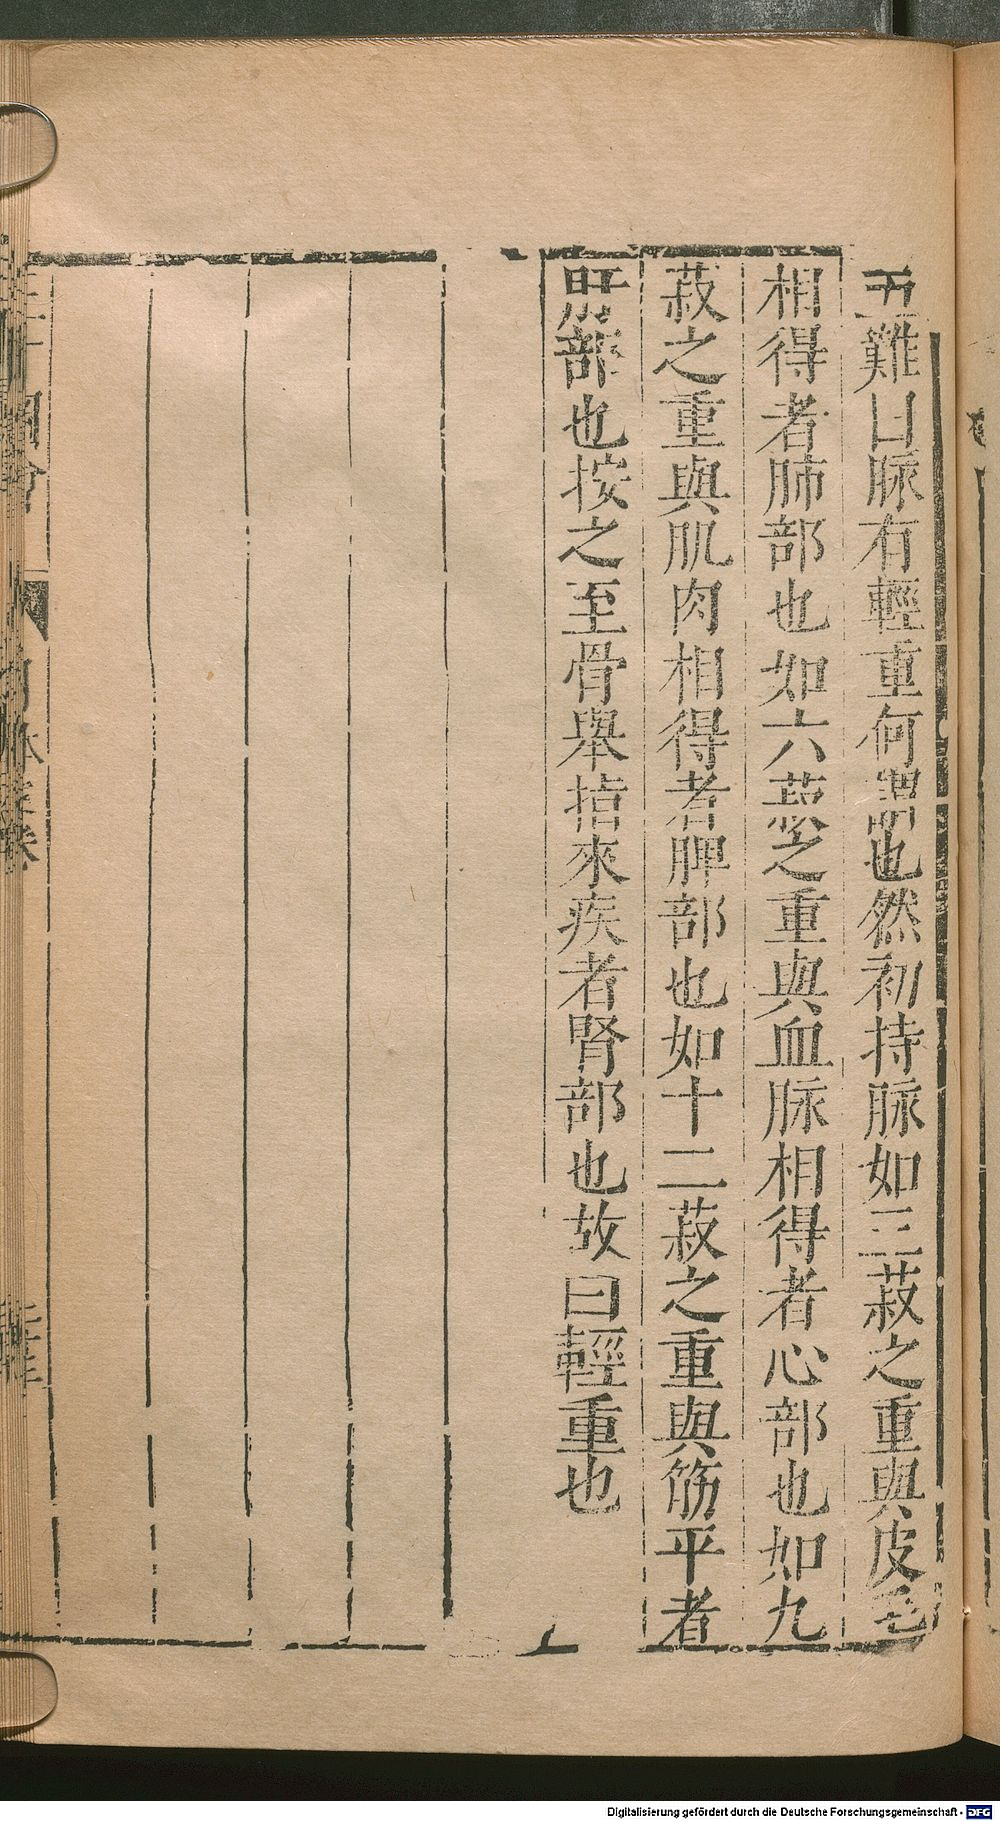 五難曰脉有輕重何謂也然初持脉如三菽之重與皮毛
相得者肺部也如六菽之重與血脉相得者心部也如九
菽之重與肌肉相得者脾部也如十二菽之重與筋平者
肝部也按之至骨舉指來疾者腎部也故曰輕重也
Digitalisierung gefördert durch die Deutsche Forschungsgemeinschaft - DFG